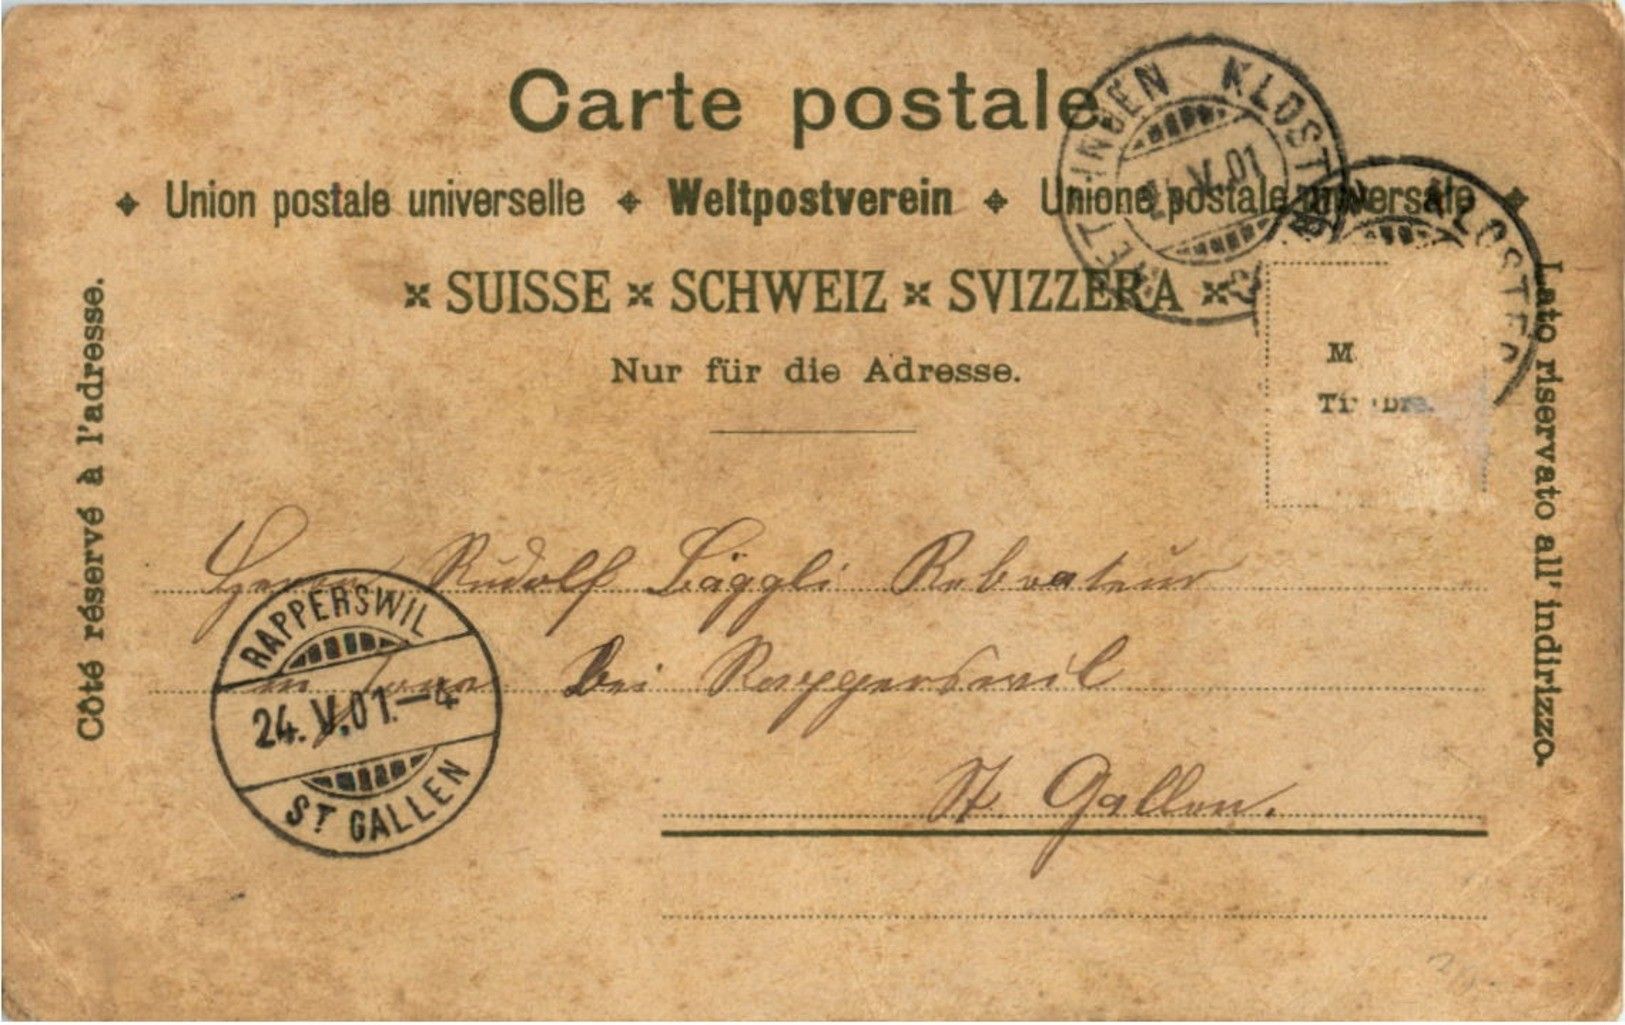 Carte postale
Union postale universelle Weltpostverein Unione postale universale
SUISSE SCHWEIZ SVIZZERA
Nur für die Adresse.
Côté réservé à l'adresse.
Lato riservato all' indirizzo.
KLOSTER
V.01
KLOSTER
M
Herrn Rudolf
in Jona bei Rapperswil
St. Gallen.
RAPPERSWIL
24.V.01.-4
ST GALLEN